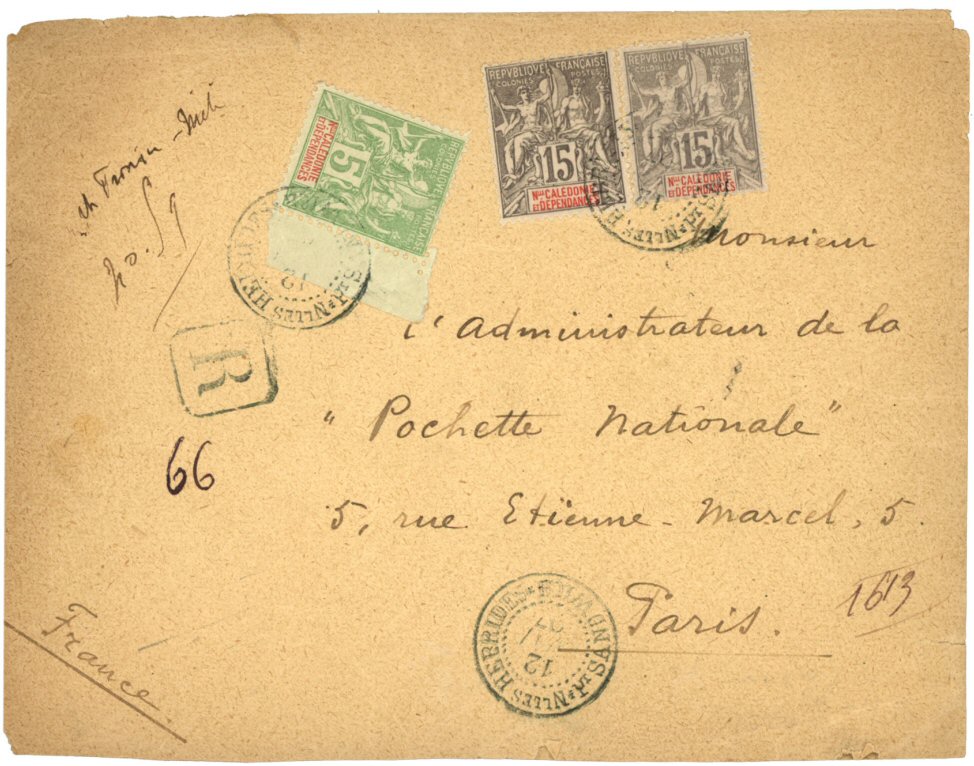 REPVBLIQVE FRANÇAISE
COLONIES POSTES
15
Nlle CALÉDONIE
ET DÉPENDANCES
REPVBLIQVE FRANÇAISE
COLONIES POSTES
15
Nlle CALÉDONIE
ET DÉPENDANCES
REPVBLIQVE FRANÇAISE
5
Nlle CALÉDONIE
ET DÉPENDANCES
no. 59
R
66
Monsieur
l'Administrateur de la
"Pochette Nationale"
5, rue Etienne-Marcel, 5.
Paris.
1613
France
NLLES HEBRIDES
12